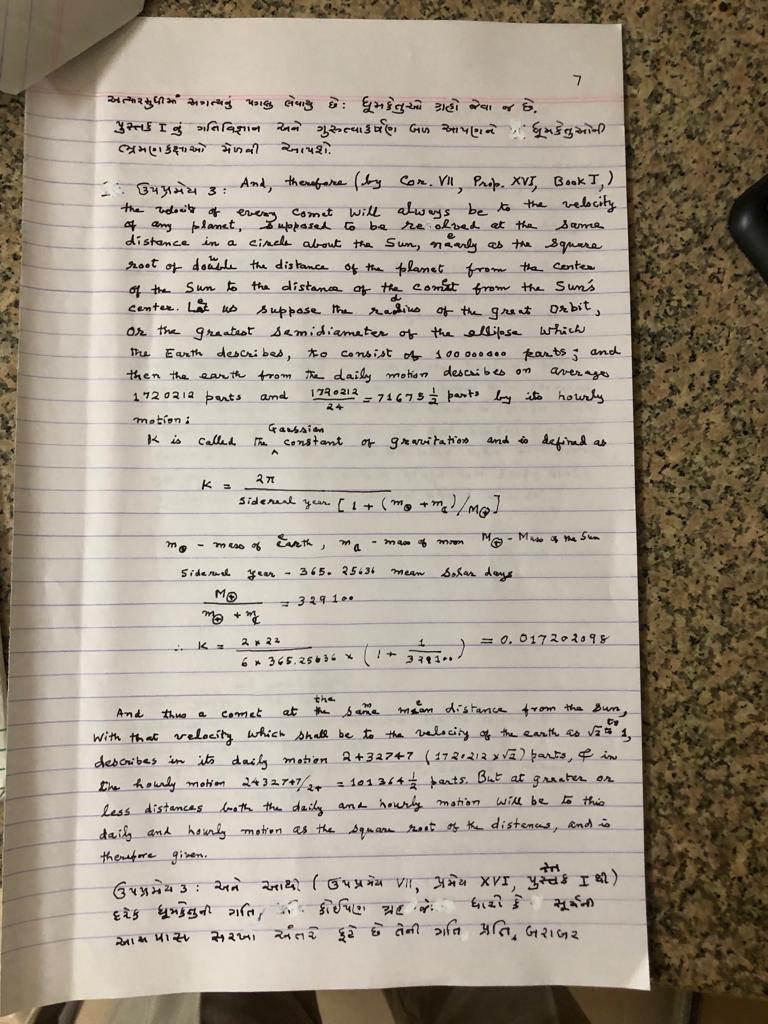 7
અત્યારસુધીમાં અગત્યનું પગલું લેવાયું છે: ધૂમકેતુઓ ગ્રહો જેવા જ છે.
પુસ્તક I નું ગતિવિજ્ઞાન અને ગુરુત્વાકર્ષણ બળ આપણને ધૂમકેતુઓની
ભ્રમણકક્ષાઓ મેળવી આપશે.
ઉપપ્રમેય 3: And, therefore (by Cor. VII, Prop. XVI, Book I,)
the velocity of every comet will always be to the velocity
of any planet, supposed to be re olved at the same
distance in a circle about the Sun, nearly as the square
root of double the distance of the planet from the center
of the Sun to the distance of the comet from the Sun's
center. Let us suppose the radius of the great orbit,
or the greatest semidiameter of the ellipse which
the Earth describes, to consist of 100000000 parts; and
then the earth from the daily motion describes on average
1720212 parts and 1720212/24 = 71675 1/2 parts by its hourly
motion:
K is called the Gaussian constant of gravitation and is defined as
K = 2π / Sidereal year [1 + (m⊕ + m☾)/M⊕]
m⊕ - mass of Earth, m☾ - mass of moon M⊕ - Mass of the Sun
Sidereal year - 365.25636 mean solar days
M⊕ / m⊕ + m☾ = 329100
∴ K = 2 × 22 / 6 × 365.25636 × (1 + 1/329100) = 0.017202098
And thus a comet at the same mean distance from the Sun,
with that velocity which shall be to the velocity of the earth as √2 to 1,
describes in its daily motion 2432747 (1720212 × √2) parts, & in
the hourly motion 2432747/24 = 101364 1/2 parts. But at greater or
less distances both the daily and hourly motion will be to this
daily and hourly motion as the square root of the distances, and is
therefore given.
ઉપપ્રમેય 3: અને આથી (ઉપપ્રમેય VII, પ્રમેય XVI, પુસ્તક I થી)
દરેક ધૂમકેતુની ગતિ, કોઈપણ ગ્રહ જે ધારો કે સૂર્યની
આસપાસ સરખા અંતરે ફરે છે તેની ગતિ પ્રતિ, બરાબર